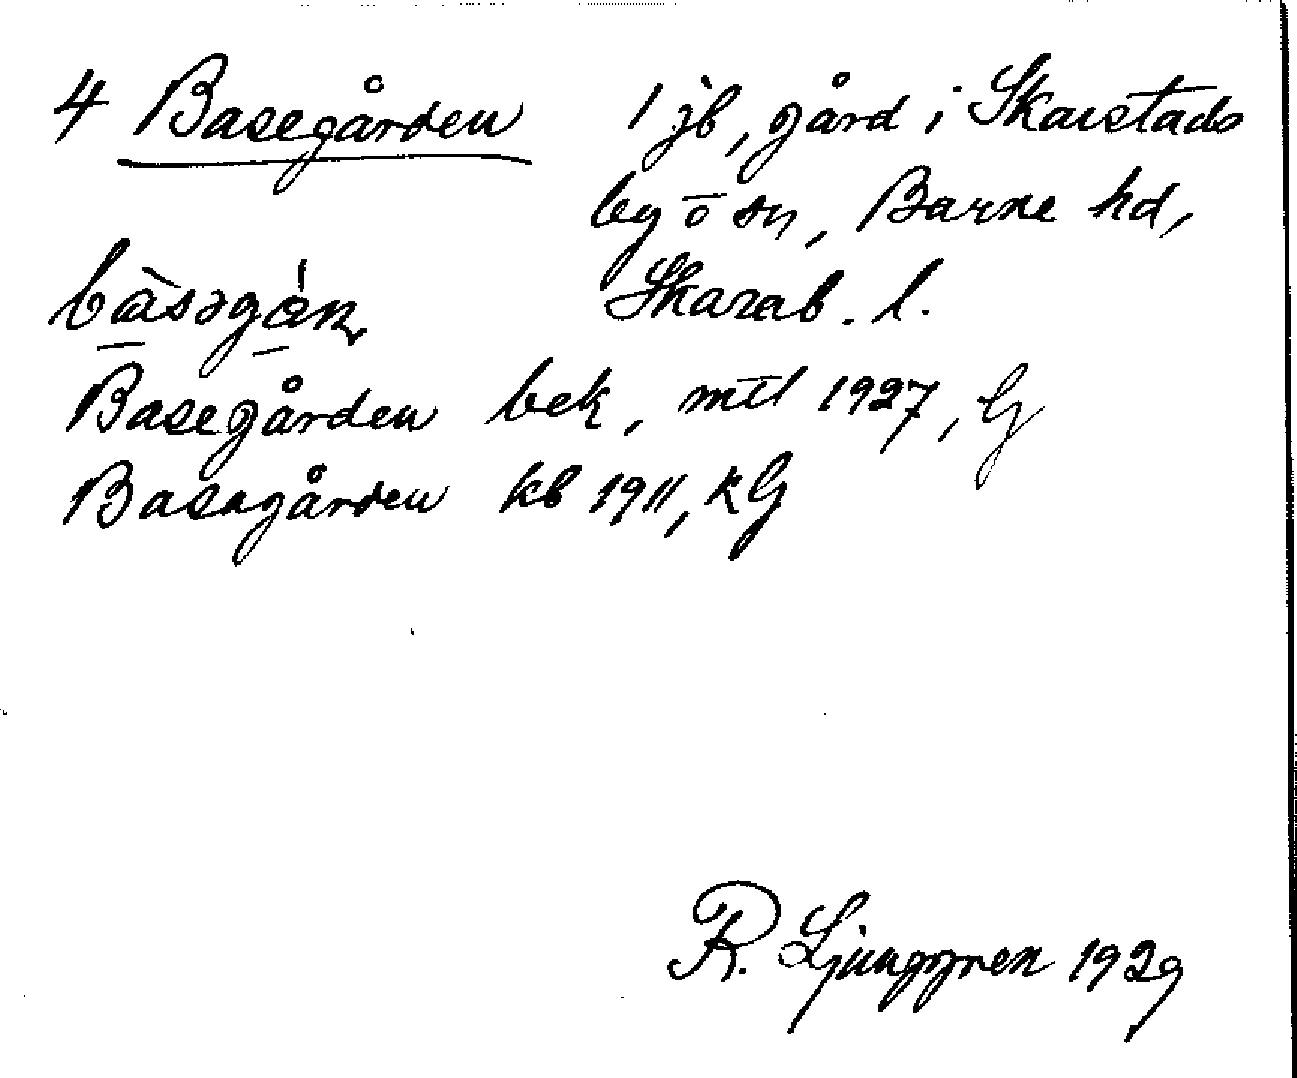 4 Basegården 1 jb, gård i Skarstads
by o sn, Barne hd,
bàsəgán Skarab. l.
Basegården bek, mtl 1927, G
Basagården kb 1911, kG
R. Ljunggren 1929